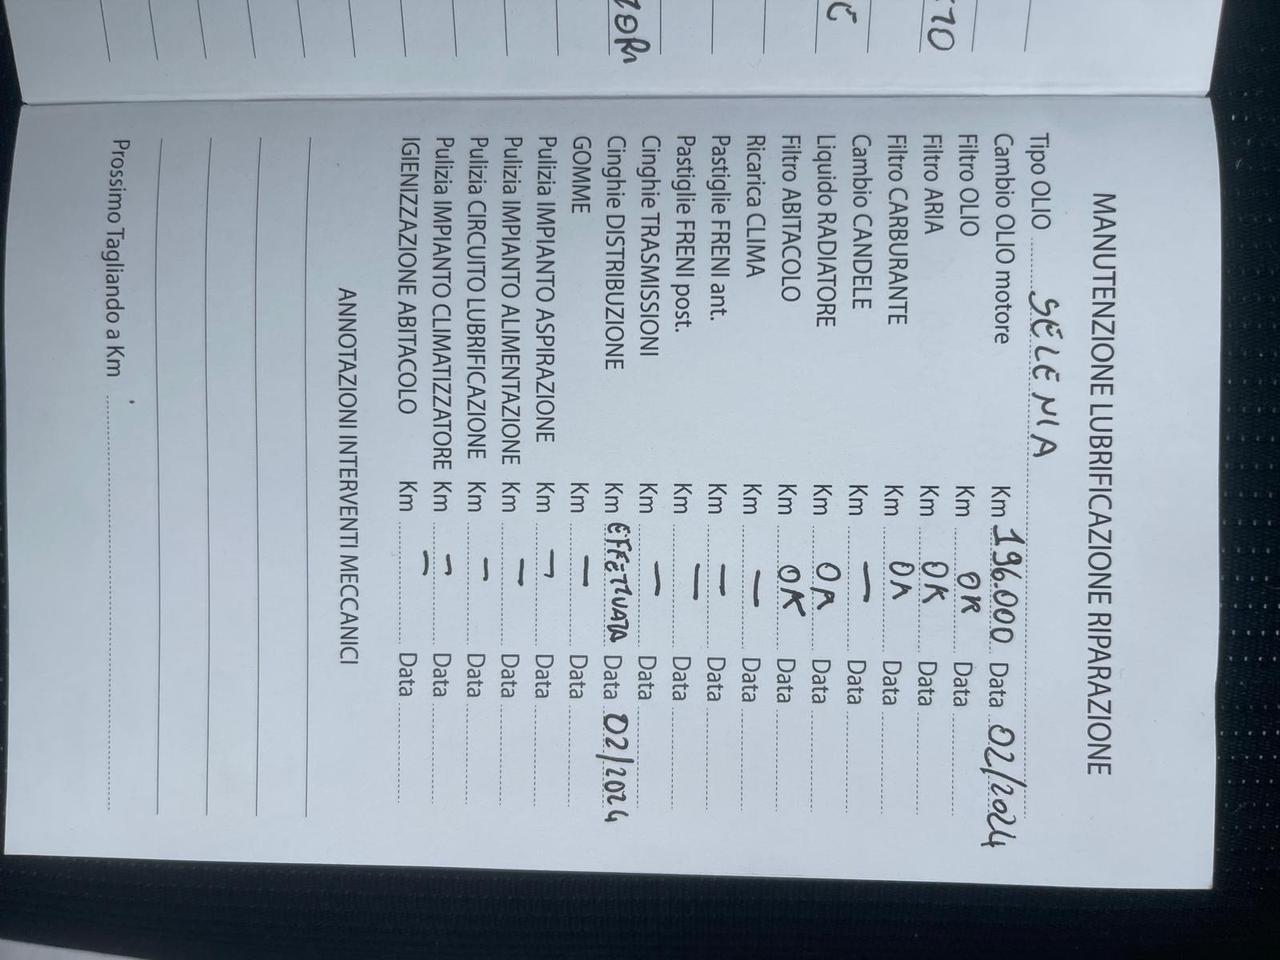 MANUTENZIONE LUBRIFICAZIONE RIPARAZIONE
Tipo OLIO SELENIA
Cambio OLIO motore Km 196.000 Data 02/2024
Filtro OLIO Km OK Data
Filtro ARIA Km OK Data
Filtro CARBURANTE Km OK Data
Cambio CANDELE Km — Data
Liquido RADIATORE Km OK Data
Filtro ABITACOLO Km OK Data
Ricarica CLIMA Km — Data
Pastiglie FRENI ant. Km — Data
Pastiglie FRENI post. Km — Data
Cinghie TRASMISSIONI Km — Data
Cinghie DISTRIBUZIONE Km EFFETTUATA Data 02/2024
GOMME Km — Data
Pulizia IMPIANTO ASPIRAZIONE Km — Data
Pulizia IMPIANTO ALIMENTAZIONE Km — Data
Pulizia CIRCUITO LUBRIFICAZIONE Km — Data
Pulizia IMPIANTO CLIMATIZZATORE Km — Data
IGIENIZZAZIONE ABITACOLO Km — Data
ANNOTAZIONI INTERVENTI MECCANICI
Prossimo Tagliando a Km